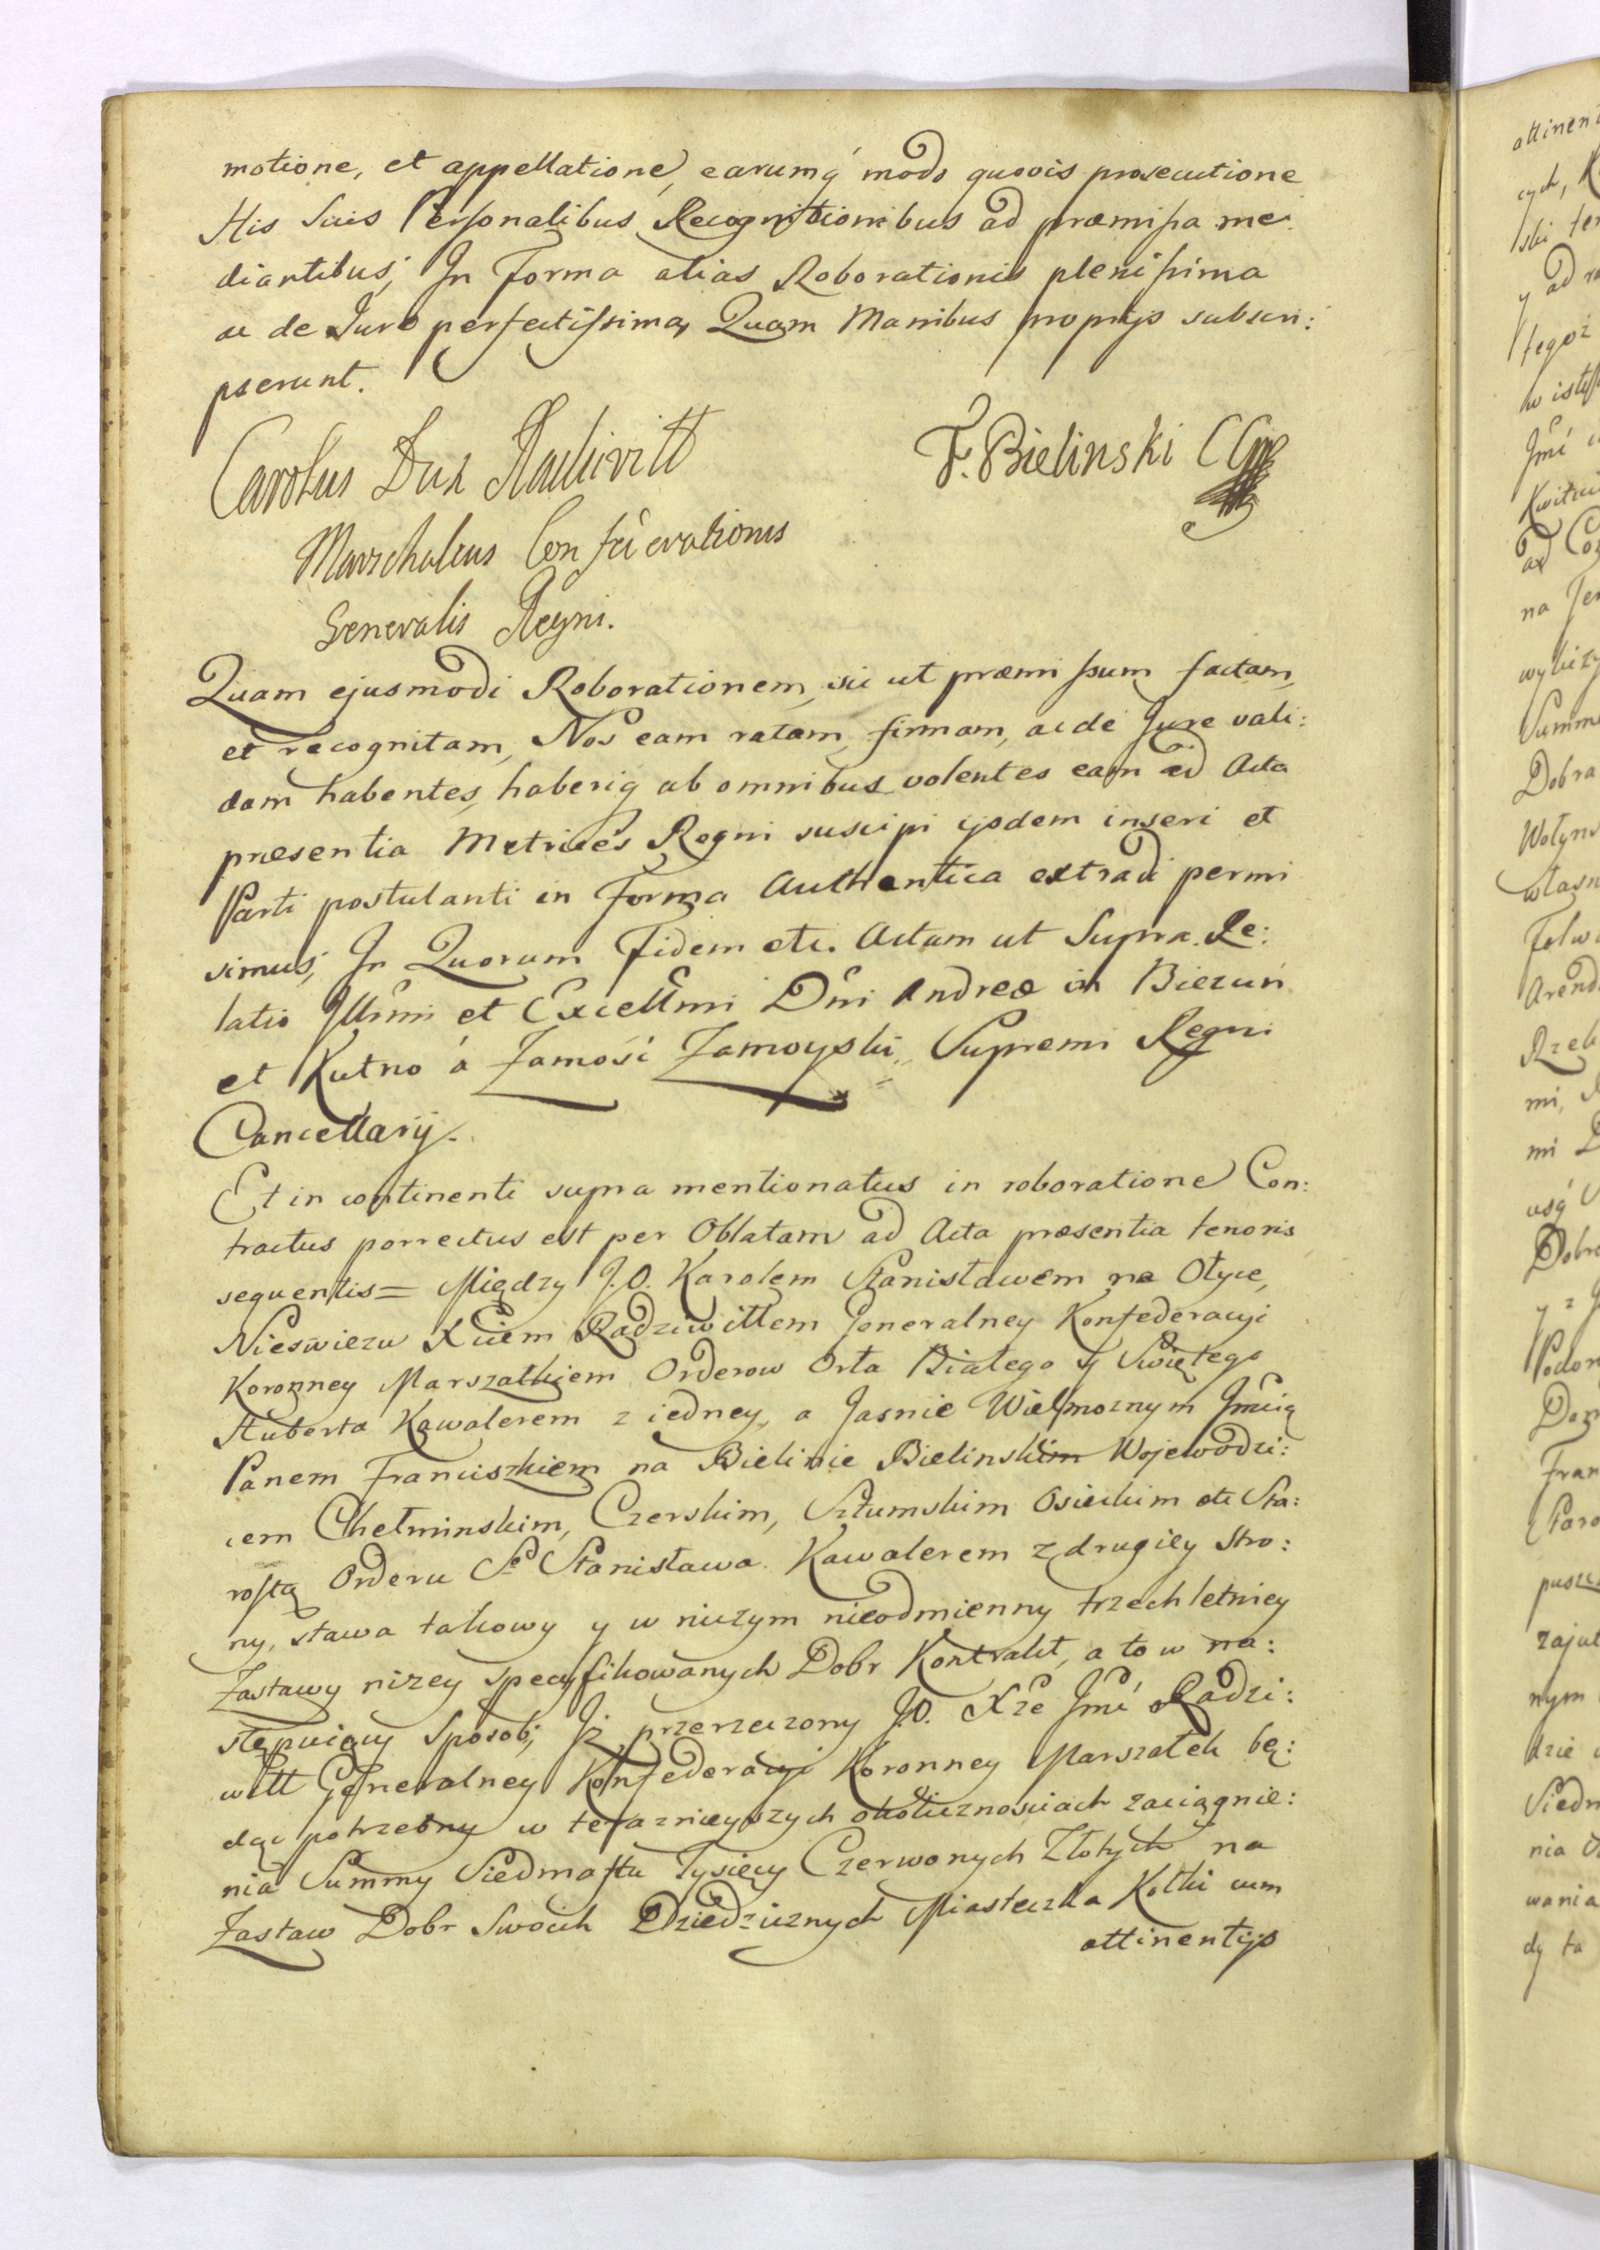 motione, et appellatione, earumq́ modo quovis prosecutione
His Suis Personalibus Recognitionibus ad præmissa me
diantibus, In Forma alias Roborationis plenissima
ac de Jure perfectissima, Quam Manibus proprijs subscri:
pserunt.
Carolus Dux Radivill
F. Bielinski
Marschalcus Confederationis
Generalis Regni.
Quam ejusmodi Roborationem, sic ut præmissum factam,
et recognitam, Nos eam ratam, firmam, ac de Jure vali:
dam habentes, haberiq ab omnibus volentes eam ad Acta
præsentia Metrices Regni suscipi ijsdem inseri et
Parti postulanti in Forma Authentica extradi permi
simus, In Quorum Fidem etc. Actum ut Supra. Re:
latio Illmi et Excellmi Dni Andreæ in Biezuń
et Kutno á Zamość Zamoyski, Supremi Regni
Cancellarij.
Et in continenti supra mentionatus in roboratione Con:
tractus porrectus est per Oblatam ad Acta præsentia tenoris
sequentis = Między J.O. Karolem Stanisławem na Ołyce,
Nieświezu Xciem Radziwiłłem Generalney Konfederacyi
Koronney Marszałkiem Orderow Orła Białego y Swiętego
Huberta Kawalerem z iedney, a Jasnie Wielmoznym Jmcią
Panem Franciszkiem na Bielinie Bielinskim Wojewodzi:
cem Chełminskim, Czerskim, Sztumskim Osieckim etc Sta:
rostą Orderu S° Stanisława Kawalerem z drugiey stro:
ny, stawa takowy y w niczym nieodmienny trzechletniey
Zastawy nizey specyfikowanych Dobr Kontrakt, a to w na:
stępuiący Sposob, Jz przerzeczony J.O. Xze Jmć Radzi:
wiłł Generalney Konfederacyi Koronney Marszałek bę:
dąc potrzebny w teraznieyszych okolicznosciach zaciągnie:
nia Summy Siedmastu Tysięcy Czerwonych Złotych na
Zastaw Dobr Swoich Dziedzicznych Miasteczka Kołki cum
attinentijs